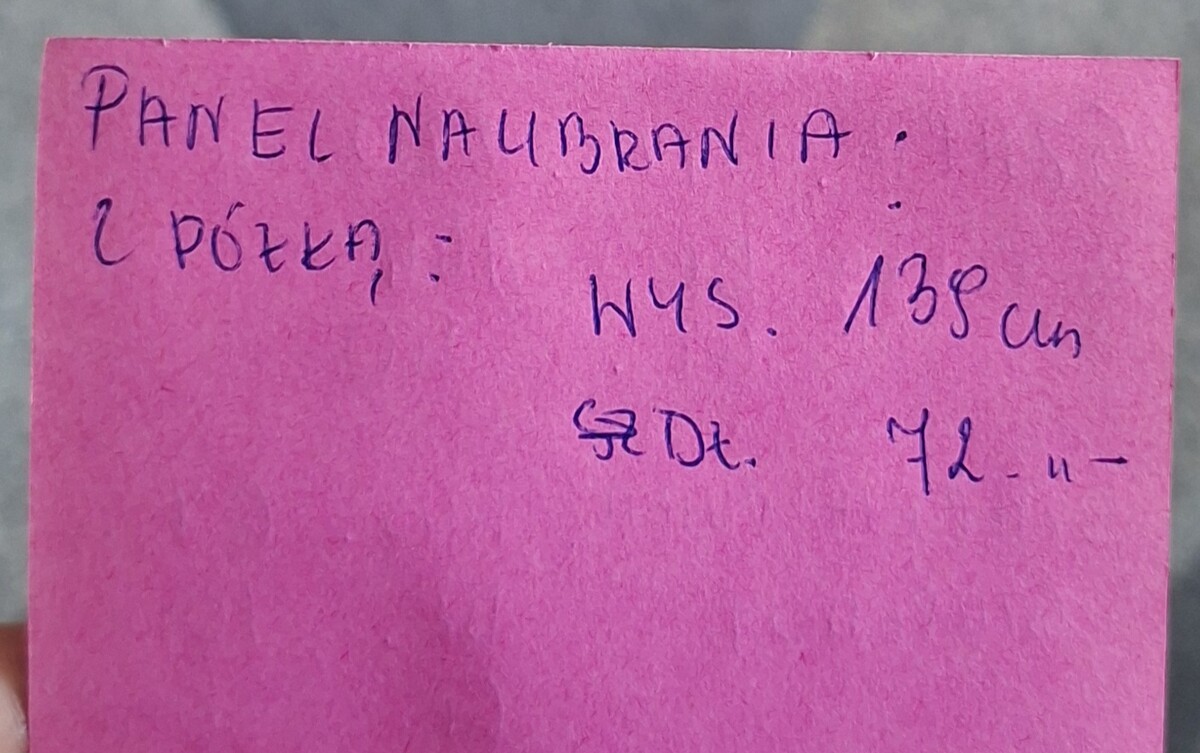 PANEL NA UBRANIA :
Z PÓŁKĄ :
WYS. 139 cm
DŁ. 72 -"-